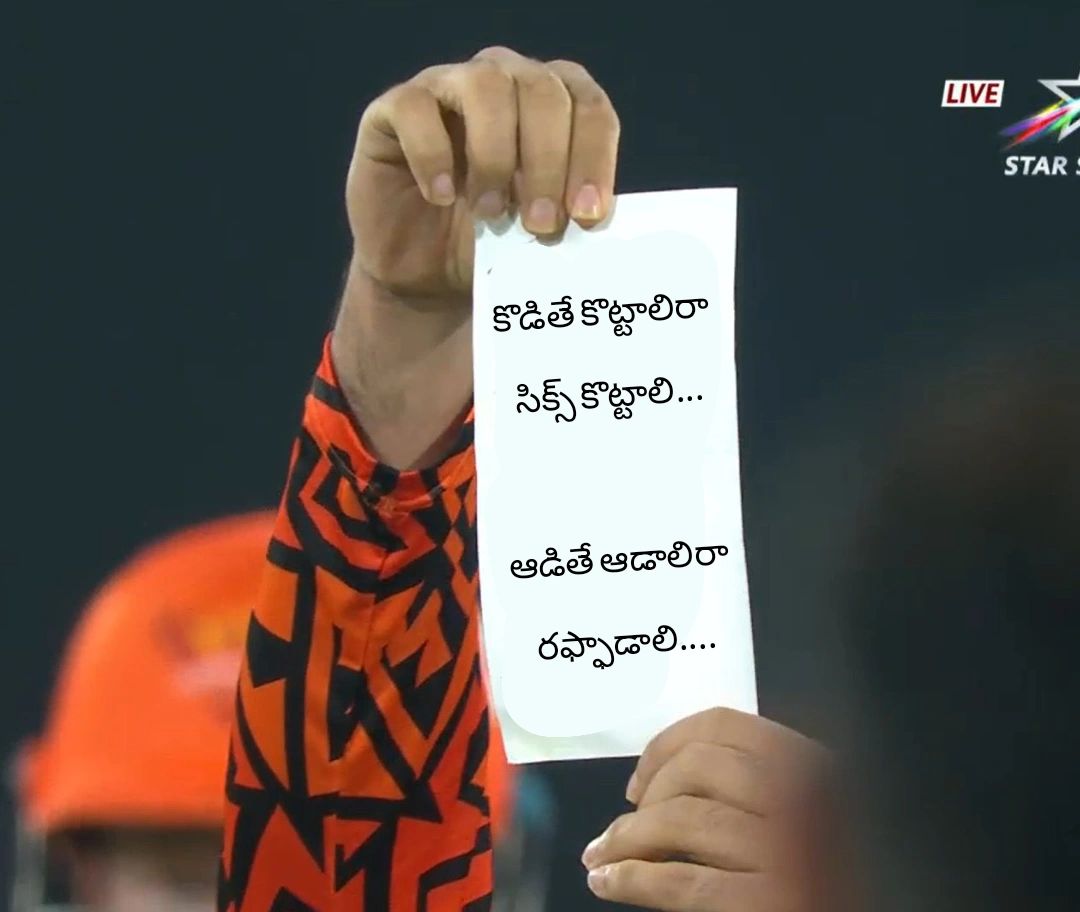 LIVE
STAR S
కొడితే కొట్టాలిరా
సిక్స్ కొట్టాలి...
ఆడితే ఆడాలిరా
రఫ్ఫాడాలి....